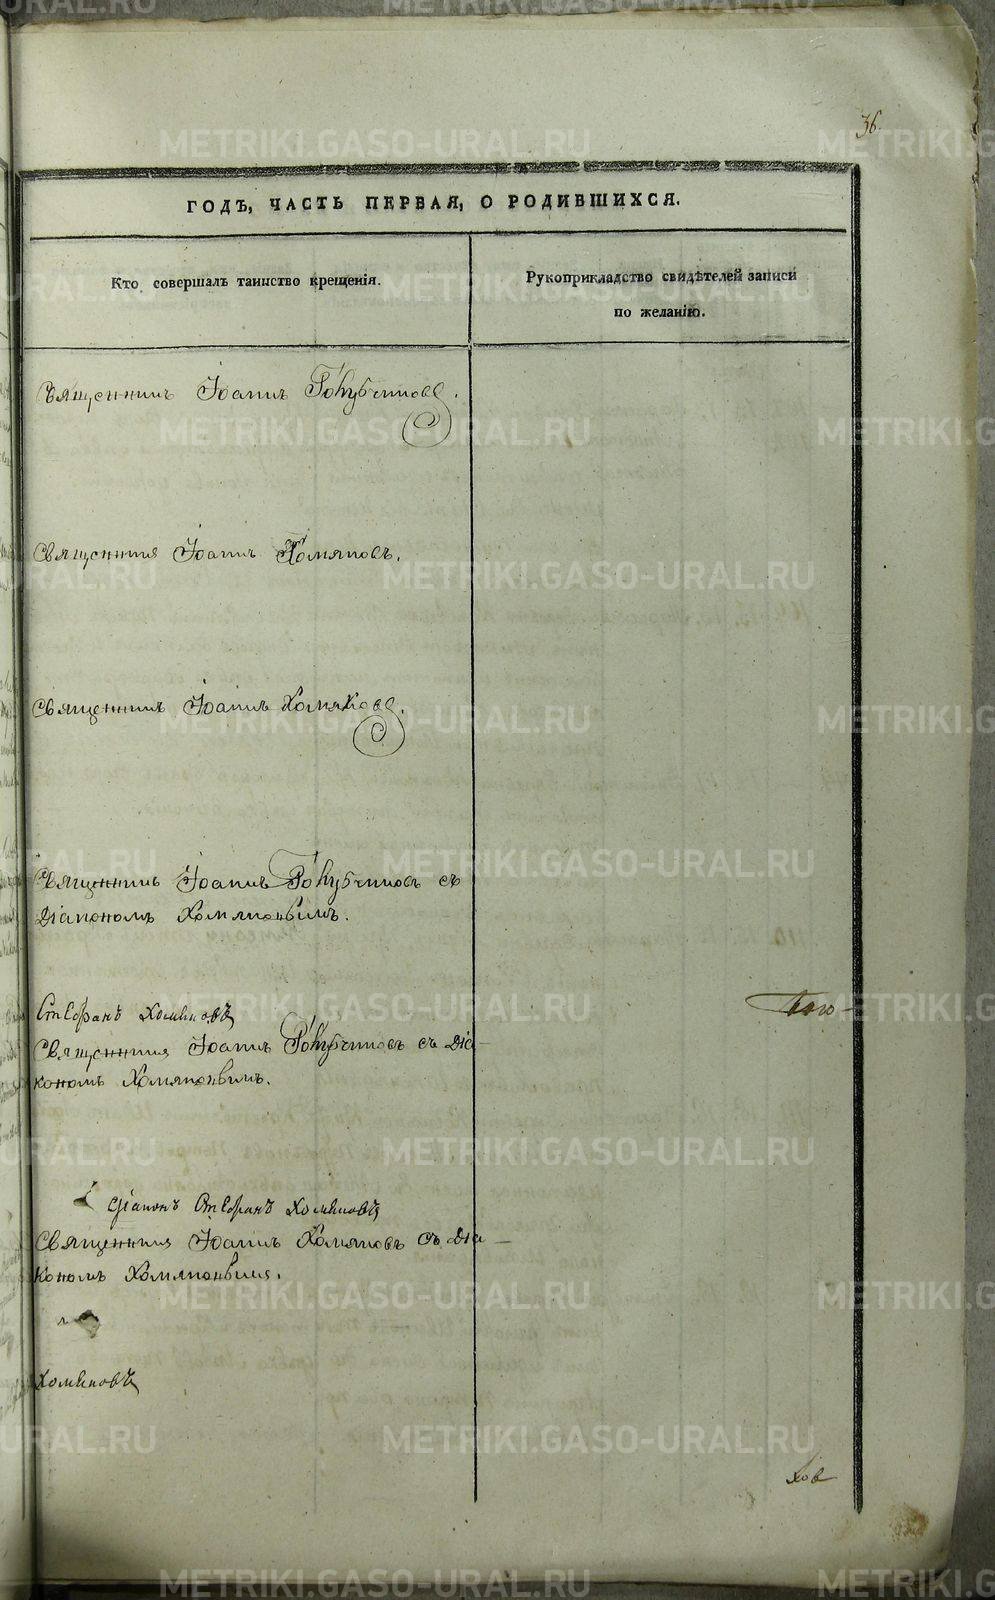 36.
ГОДЪ, ЧАСТЬ ПЕРВАЯ, О РОДИВШИХСЯ.
Кто совершалъ таинство крещенія.
Рукоприкладство свидѣтелей записи
по желанію.
Священникъ Іоаннъ
Священникъ Іоаннъ Хомяковъ.
Священникъ Іоаннъ Хомяковъ.
Священникъ Іоаннъ съ
Діакономъ Хомяковымъ.
Стефанъ Хомяковъ
Священникъ Іоаннъ съ Діа-
кономъ Хомяковымъ.
Діаконъ Стефанъ Хомяковъ
Священникъ Іоаннъ Хомяковъ съ Діа-
кономъ Хомяковымъ.
Хомяковъ
ков
METRIKI.GASO-URAL.RU